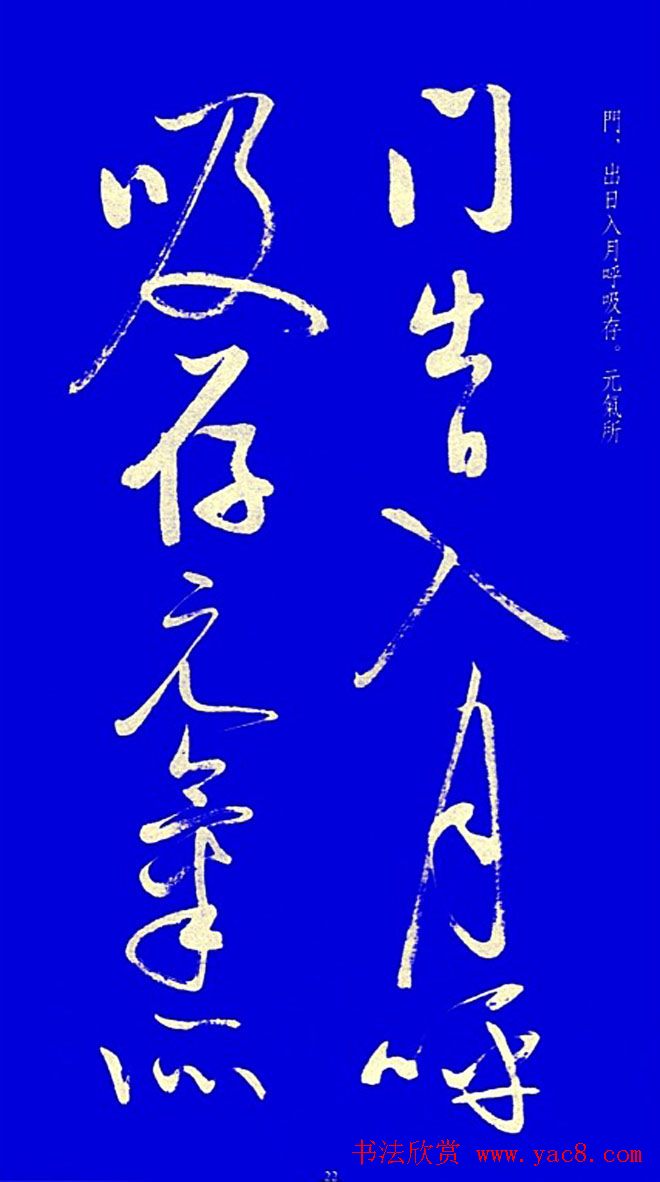 門、出日入月呼吸存。元氣所
門出日入月呼
吸存元氣所
书法欣赏 www.yac8.com
22